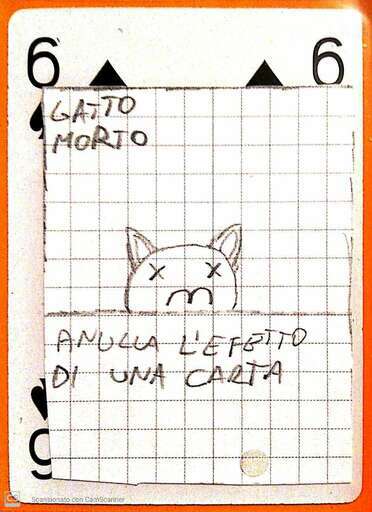 6 6
GATTO
MORTO
ANULLA L'EFETTO
DI UNA CARTA
6
Scansionato con CamScanner